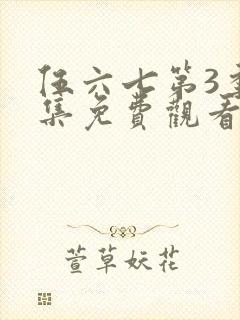 伍六七第3季
集免費觀看
萱草妖花